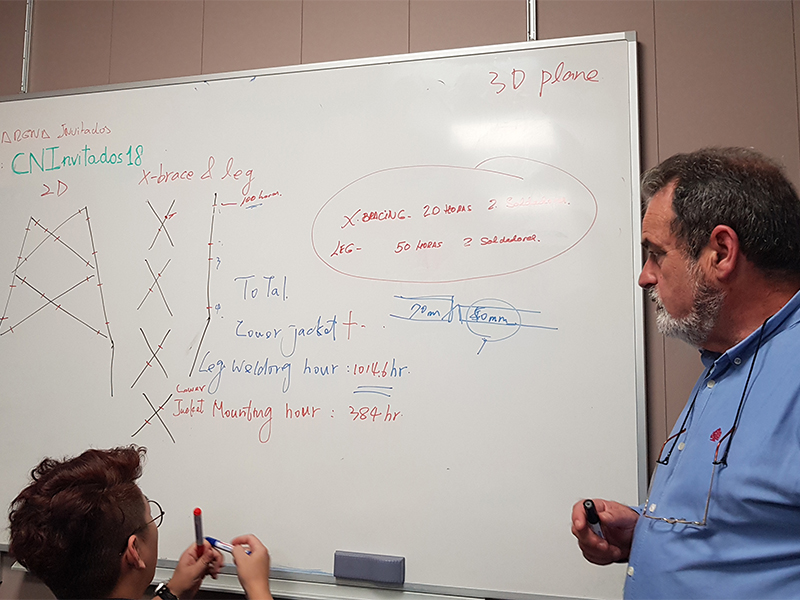 3D plane
ARENA Invitados
: CNInvitados18
2D
X-brace & leg
100 horas.
X-BRACING- 20 HORAS 2
LEG- 50 HORAS 2 Soldadores.
Total
Lower jacket
70m 50mm
Leg Welding hour : 1014.6 hr.
Lower
Jacket Mounting hour : 384 hr.